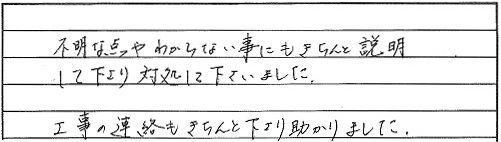 不明な点やわからない事にもきちんと説明
して下さり対処して下さいました。
工事の連絡もきちんと下さり助かりました。